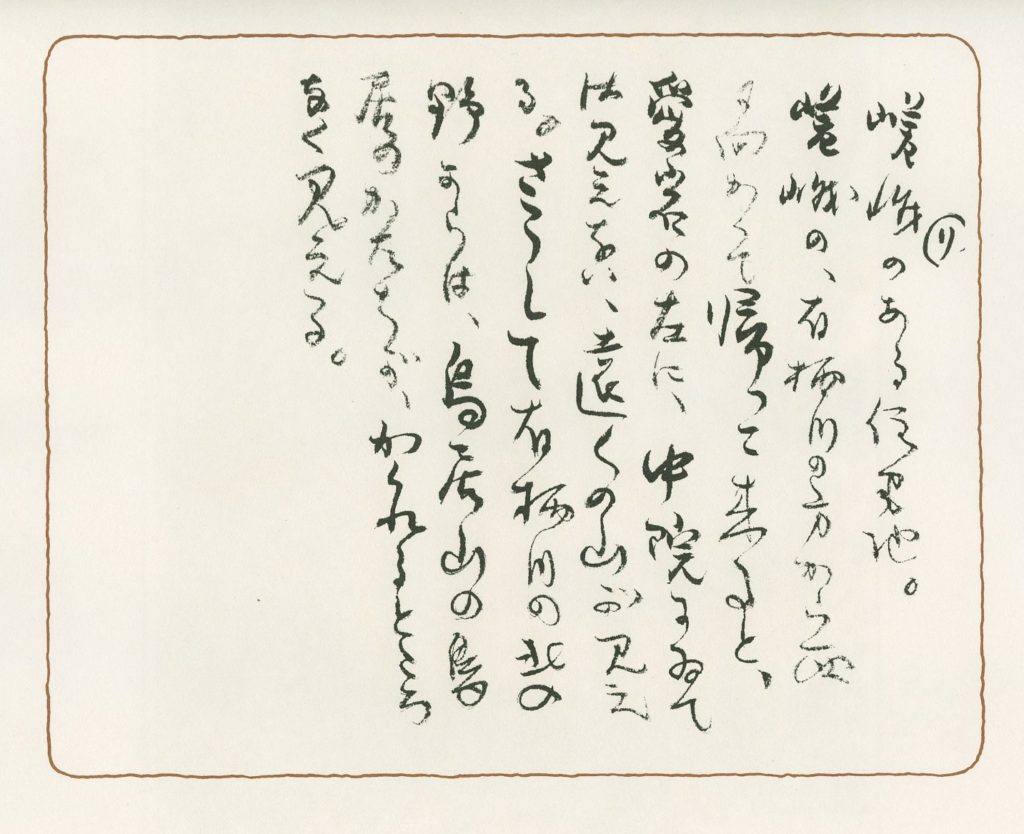 嵯峨のある
嵯峨の、有栖川の方から西
に向かつて帰つて来ると、
愛宕の左に、中院にゐて
は見えない、遠くの山が見え
る。さうして有栖川の北の
野からは、鳥居山の鳥
居のかたちが、かくれるところ
なく見える。